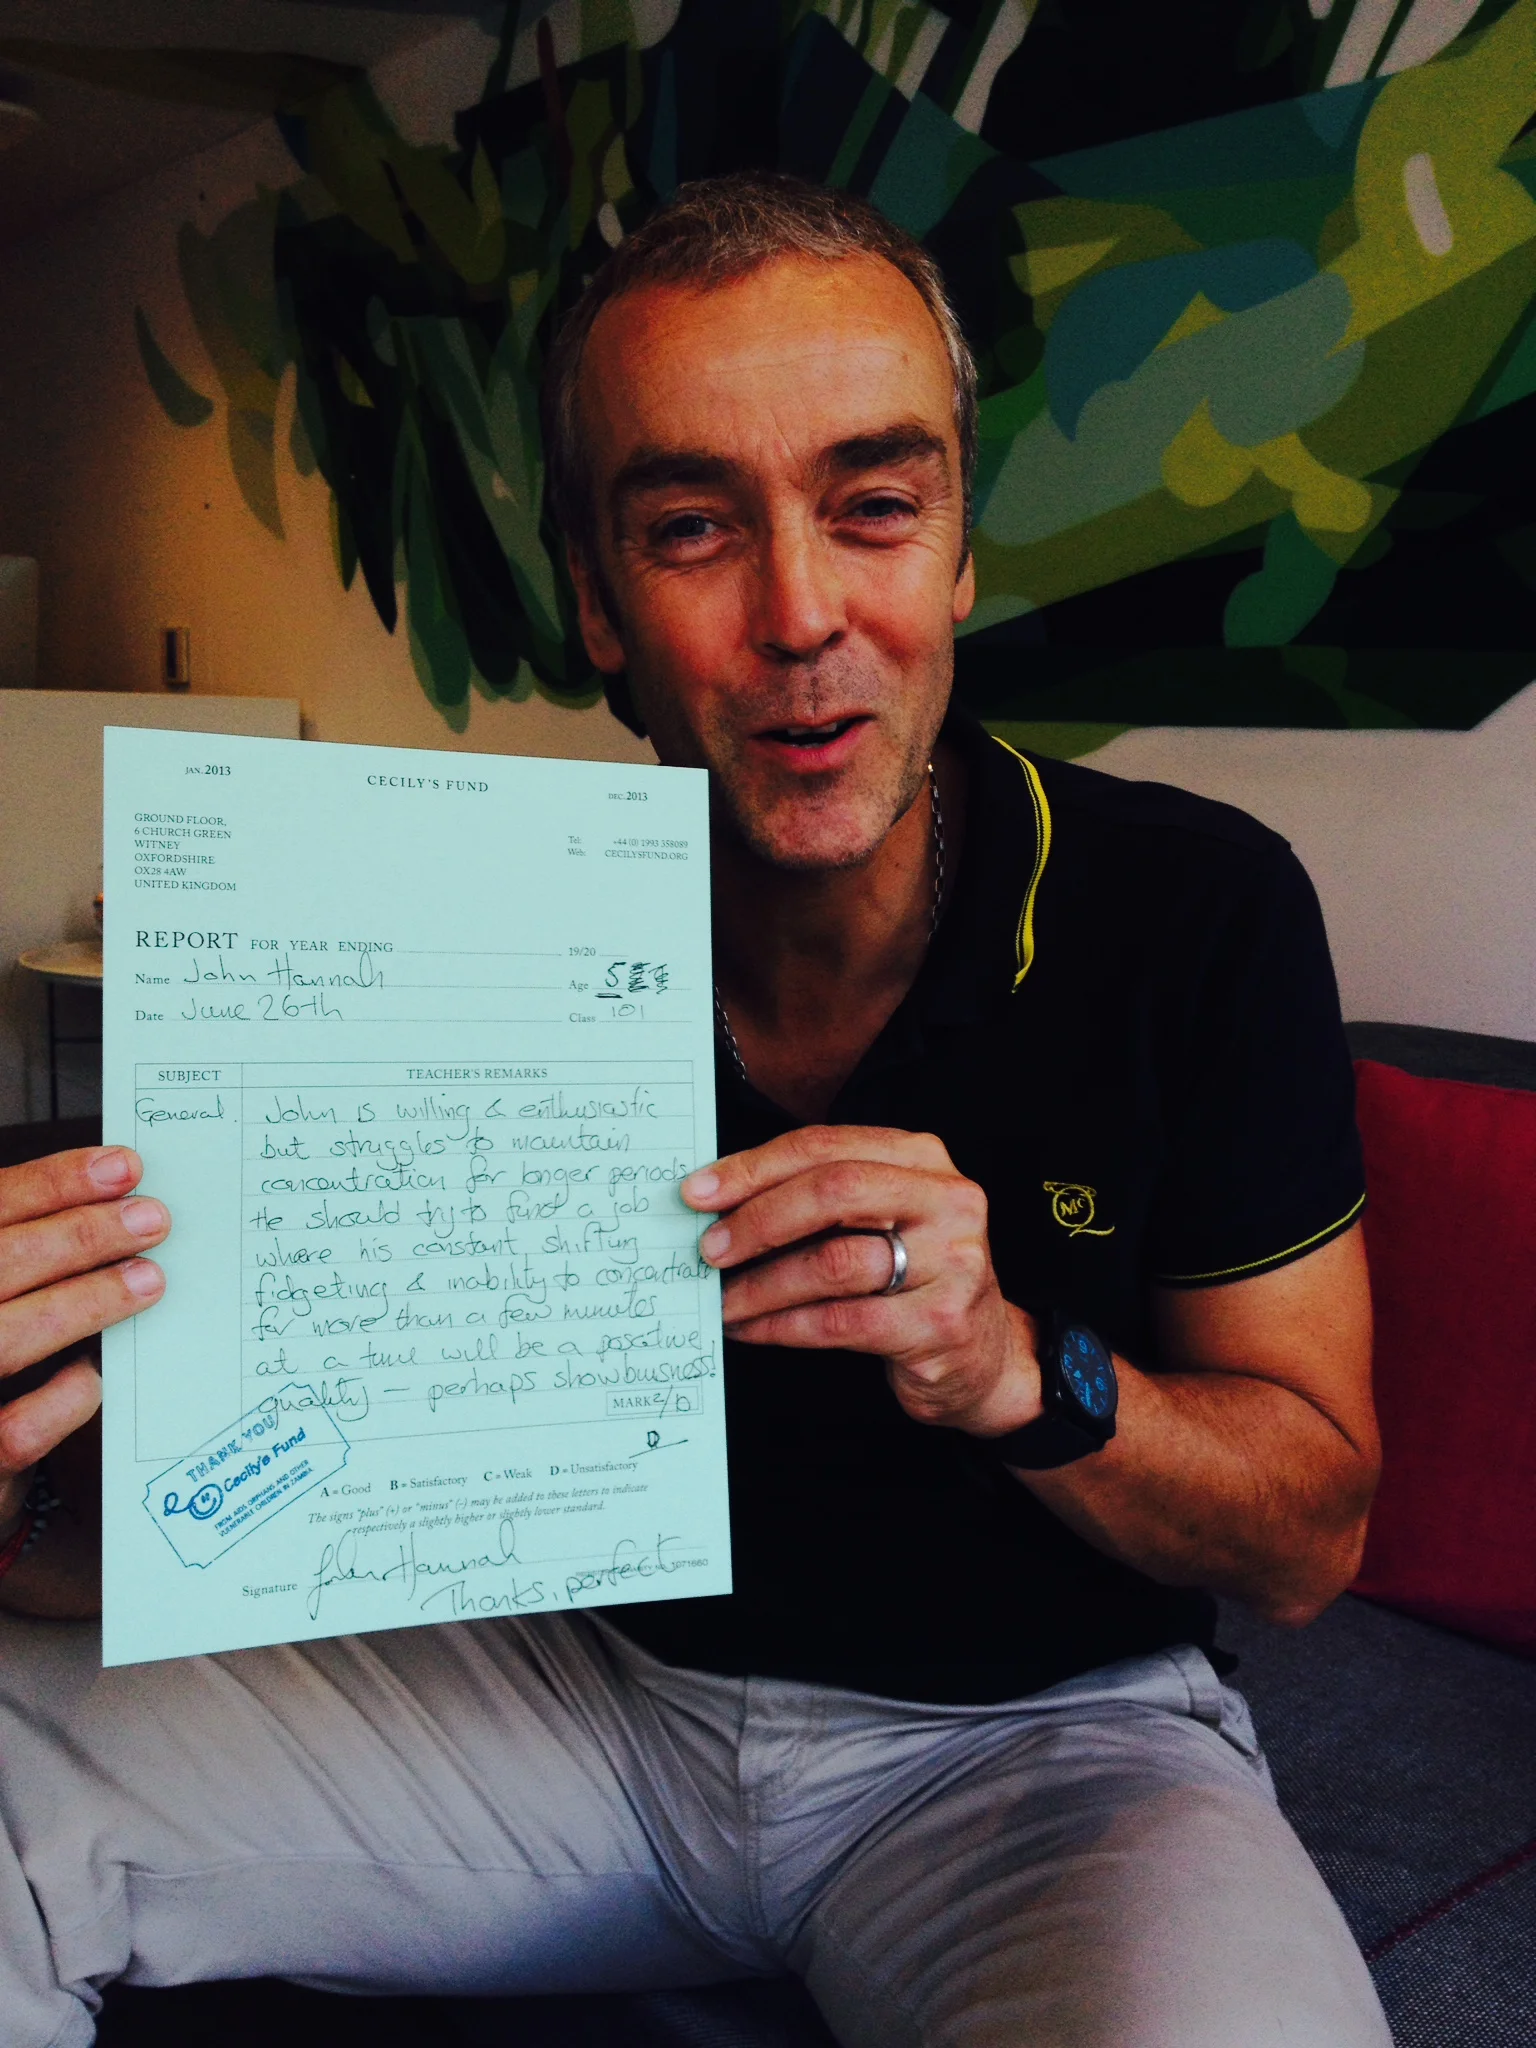 JAN. 2013
CECILY'S FUND
DEC. 2013
GROUND FLOOR,
6 CHURCH GREEN
WITNEY
OXFORDSHIRE
OX28 4AW
UNITED KINGDOM
Tel: +44 (0) 1993 358089
Web: CECILYSFUND.ORG
REPORT FOR YEAR ENDING 19/20
Name John Hannah Age 5
Date June 26th Class 101
SUBJECT TEACHER'S REMARKS
General. John is willing & enthusiastic
but struggles to maintain
concentration for longer periods
He should try to find a job
where his constant, shifting
fidgeting & inability to concentrate
for more than a few minutes
at a time will be a positive
quality – perhaps showbusiness!
MARK 2/10
D
A = Good B = Satisfactory C = Weak D = Unsatisfactory
The signs "plus" (+) or "minus" (-) may be added to these letters to indicate
respectively a slightly higher or slightly lower standard.
THANK YOU
Cecily's Fund
FROM AIDS ORPHANS AND OTHER
VULNERABLE CHILDREN IN ZAMBIA
Signature John Hannah
1071660
Thanks, perfect
McQ